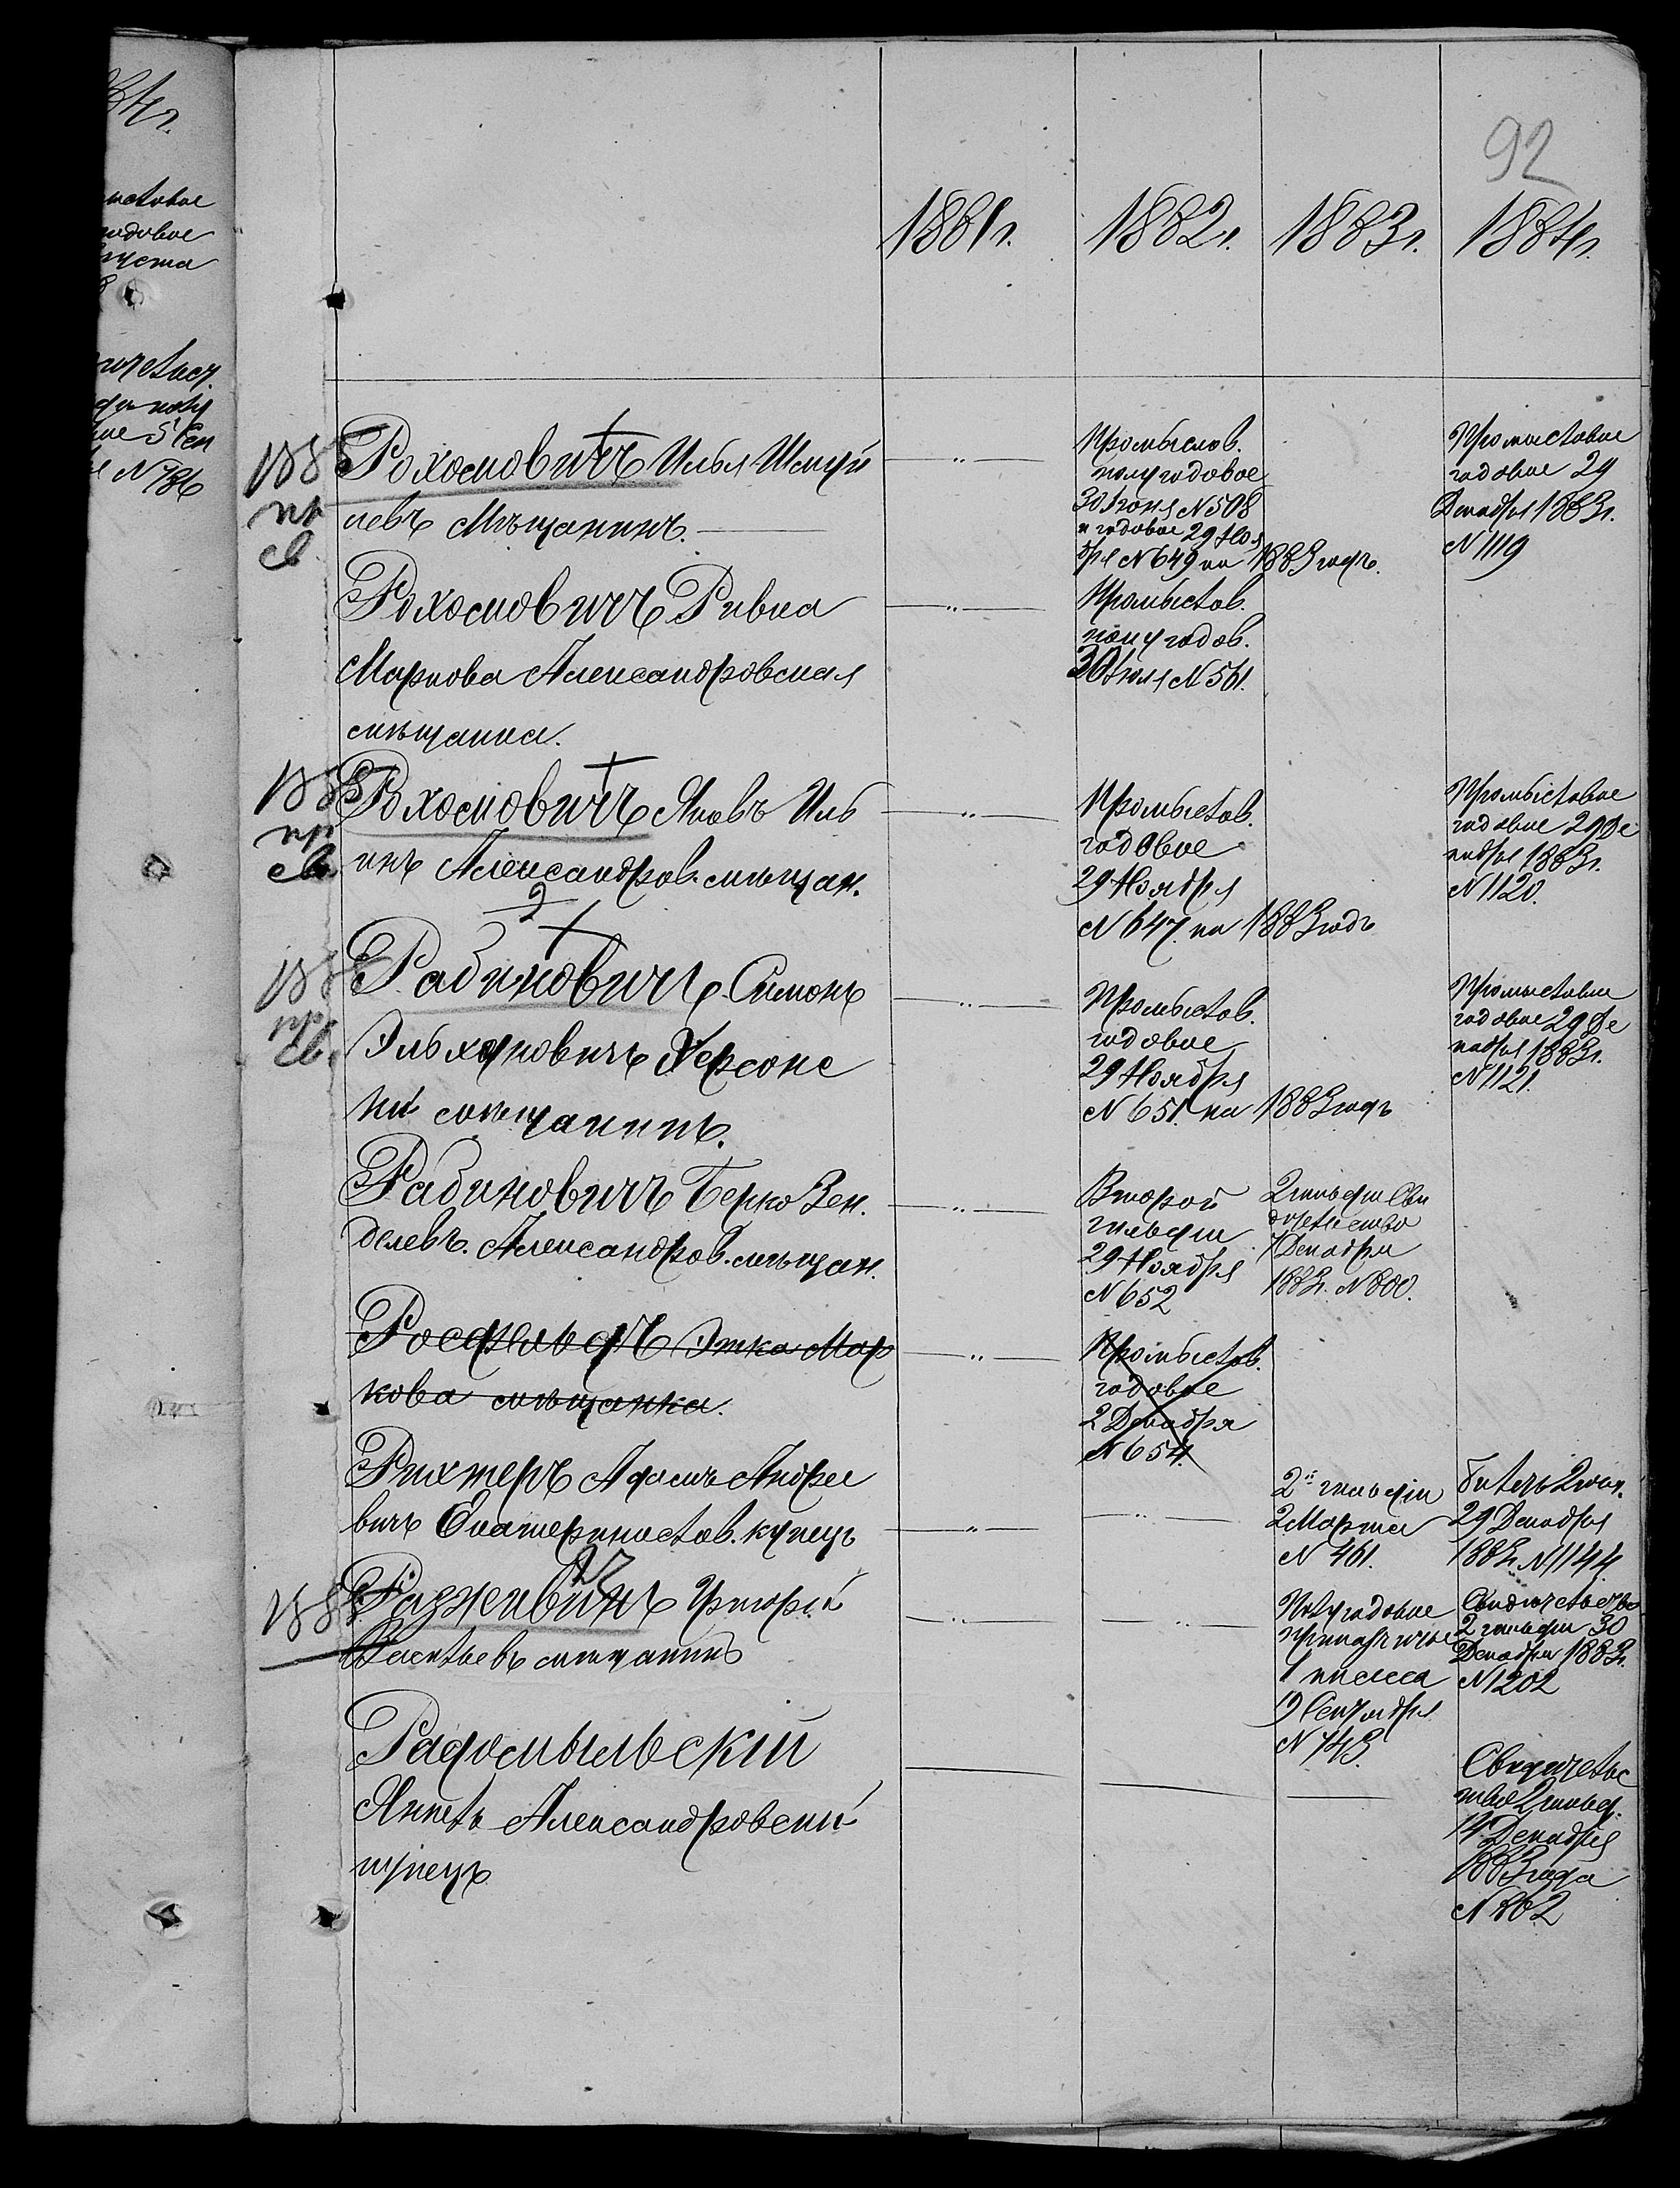 92
1881г. 1882г. 1883г. 1884г.
Рохомовичъ Илья Шмуй
левъ Мѣщанинъ.
Промыслов.
полугодовое
30 Іюня N 508
и годовое 29 Ноя
бря N 649 на 1883 годъ.
Промысловое
годовое 29
Декабря 1883г.
N 1119
Рохомовичъ Ривка
Маркова Александровская
мѣщанка.
Промыслов.
полугодов.
30 Іюля N 561.
Рохомовичъ Яковъ Иль
инъ Александров. мѣщан.
Промыслов.
годовое
29 Ноября
N 647 на 1883 годъ
Промысловое
годовое 29 Де
кабря 1883г.
N 1120.
Рабиновичъ Симонъ
Эльхуновичъ Херсонс
кій мѣщанинъ.
Промыслов.
годовое
29 Ноября
N 651. на 1883 годъ
Промысловое
годовое 29 Де
кабря 1883г.
N 1121.
Рабиновичъ Берко Зен.
делевъ. Александров. мѣщан.
Второй
гильдіи
29 Ноября
N 652
2 гильдіи Сви
дѣтельство
7 Декабря
1883г. N 800.
Росфельдъ Этка Мар
кова мѣщанка.
Промыслов.
годовое
2 Декабря
N 654.
Рихтеръ Адамъ Андрее
вичъ Екатеринослав. купецъ
2й гильдіи
2 Марта
N 461.
билетъ 2 гил.
29 Декабря
1883г. N 1144
Григорій
Васильевъ мѣщанинъ
Полугодовое
прикащичье
1 класса
19 Сентября
N 743
Свидѣтельство
2 гильдіи 30
Декабря 1883г.
N 1202
Радомысльскій
Александровскій
купецъ
Свидѣтельс
тво 2 гильд.
14 Декабря
1883 года
N 862